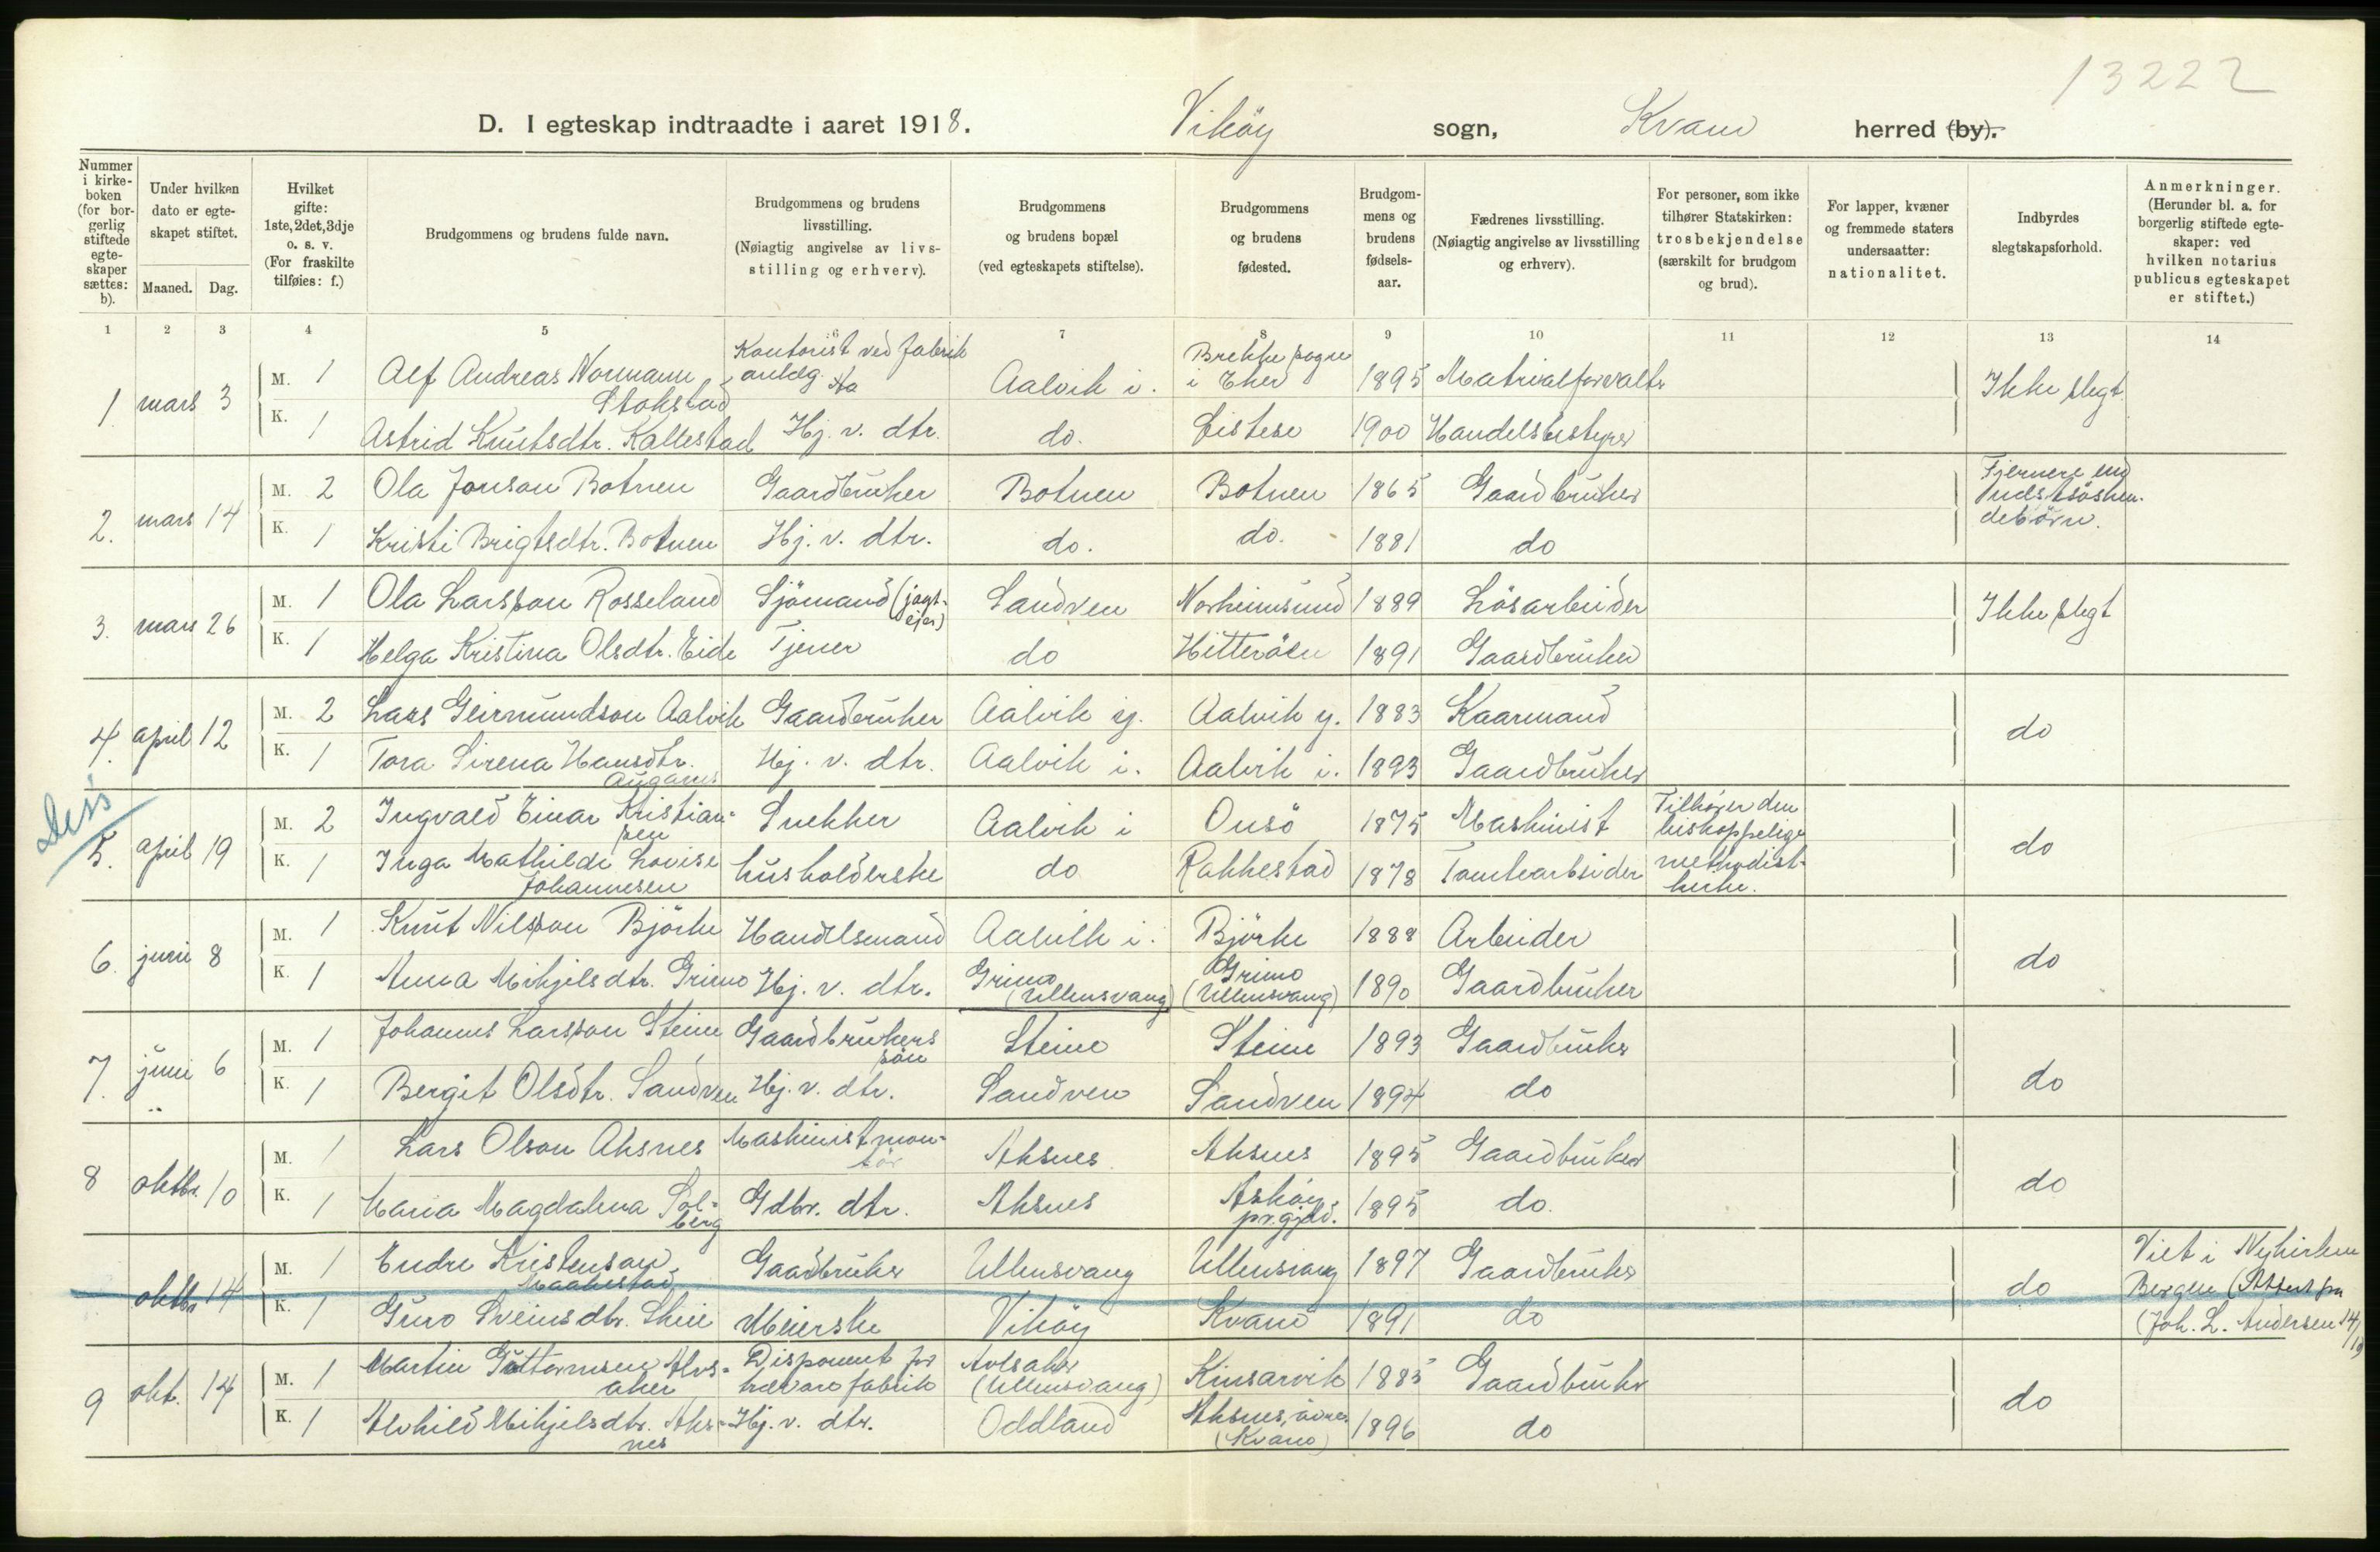 13222
D. I egteskap indtraadte i aaret 1918. Viköy sogn, Kvam herred (by).
Nummer i kirkeboken (for borgerlig stiftede egteskaper sættes: b).
Under hvilken dato er egteskapet stiftet.
Maaned. Dag.
Hvilket gifte: 1ste, 2det, 3dje o. s. v. (For fraskilte tilføies: f.)
Brudgommens og brudens fulde navn.
Brudgommens og brudens livsstilling. (Nøiagtig angivelse av livsstilling og erhverv).
Brudgommens og brudens bopæl (ved egteskapets stiftelse).
Brudgommens og brudens fødested.
Brudgommens og brudens fødselsaar.
Fædrenes livsstilling. (Nøiagtig angivelse av livsstilling og erhverv).
For personer, som ikke tilhører Statskirken: trosbekjendelse (særskilt for brudgom og brud).
For lapper, kvæner og fremmede staters undersaatter: nationalitet.
Indbyrdes slegtskapsforhold.
Anmerkninger. (Herunder bl. a. for borgerlig stiftede egteskaper: ved hvilken notarius publicus egteskapet er stiftet.)
1 2 3 4 5 6 7 8 9 10 11 12 13 14
1. mars 3 M. 1 Alf Andreas Normann Stokstad Kontorist ved fabrikanlæg Aalvik i. Brekke sogn i Eker 1895 Matrialforvalter Ikke slegt
K. 1 Astrid Knutsdtr. Kallestad Hj. v. dtr. do. Östese 1900 Handelsbestyrer
2. mars 14 M. 2 Ola Jonson Botnen Gaardbruker Botnen Botnen 1865 Gaardbruker Fjernere end sødskendebörn.
K. 1 Kristi Brigtsdtr. Botnen Hj. v. dtr. do. do. 1881 do
3. mars 26 M. 1 Ola Larsson Rosseland Sjömand (jagtejer) Sandven Norheimsund 1889 Lösarbeider Ikke slegt
K. 1 Helga Kristina Olsdtr. Eide Tjener do Hitteröen 1891 Gaardbruker
4. april 12 M. 2 Lars Geirmundson Aalvik Gaardbruker Aalvik y. Aalvik y. 1883 Kaarmand do
K. 1 Tora Sirena Hansdtr. Augarnes Hj. v. dtr. Aalvik i. Aalvik i. 1893 Gaardbruker
Diss
5. april 19 M. 2 Ingvald Einar Kristiansen Snekker Aalvik i Onsö 1875 Maskinist Tilhører den biskoppelige methodistkirke. do
K. 1 Inga Mathilde Lovise Johannesen husholderske do Rakkestad 1878 Tomtearbeider
6. juni 8 M. 1 Knut Nilsson Björke Handelsmand Aalvik i. Björke 1888 Arbeider do
K. 1 Anna Mikjelsdtr. Grimo Hj. v. dtr. Grimo (Ullensvang) Grimo (Ullensvang) 1890 Gaardbruker
7. juni 6 M. 1 Johannes Larsson Steine Gaardbrukers sön Steine Steine 1893 Gaardbruker do
K. 1 Bergit Olsdtr. Sandven Hj. v. dtr. Sandven Sandven 1894 do
8 oktbr. 10 M. 1 Lars Olson Aksnes Maskinistmontör Aksnes Aksnes 1895 Gaardbruker do
K. 1 Maria Magdalena Solberg Gdbr. dtr. Aksnes Asköy pr.gjeld. 1895 do.
oktbr 14 M. 1 Endre Kristenson Maakestad Gaardbruker Ullensvang Ullensvang 1897 Gaardbruker do Viet i Nykirken Bergen (Attest fra
K. 1 Guro Sveinsdtr. Skeie Meierske Viköy Kvam 1891 do (Joh. L. Andersen 14/10
9 okt. 14 M. 1 Martin Guttormsen Alvsaker Disponent for trævarefabrik (Ullensvang) Kinsarvik 1885 Gaardbruker do
K. 1 Alvhild Mikjelsdtr. Aksnes Hj. v. dtr. Oddland Aksnes, övre (Kvam) 1896 do